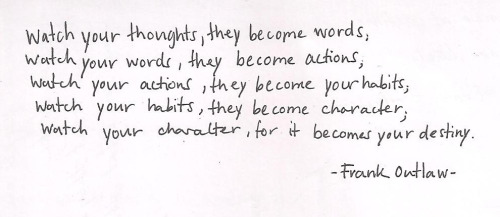 Watch your thoughts, they become words;
watch your words, they become actions;
watch your actions, they become your habits;
watch your habits, they become character;
watch your character, for it becomes your destiny.
-Frank Outlaw-